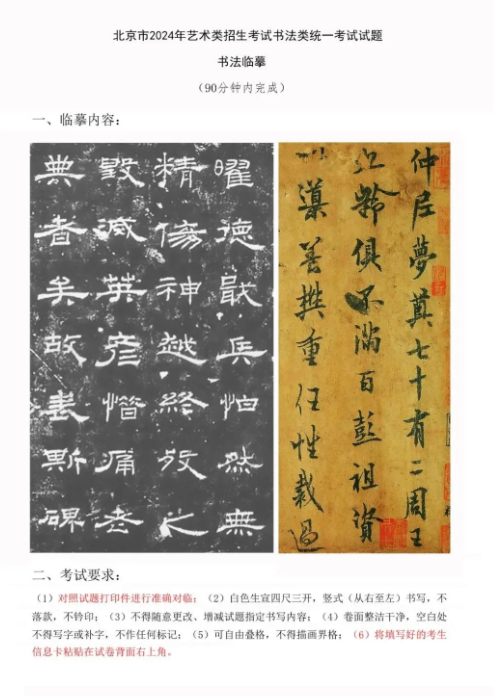 北京市2024年艺术类招生考试书法类统一考试试题
书法临摹
（90分钟内完成）
一、临摹内容：
曜德戢兵怕然無
精傷神越終殁之
毀滅英彦惜痛老
典者矣故表斯碑
仲尼夢奠七十有二周王
九齡俱不滿百彭祖資
以導養樊重任性裁過
二、考试要求：
（1）对照试题打印件进行准确对临；（2）白色生宣四尺三开，竖式（从右至左）书写，不
落款，不钤印；（3）不得随意更改、增减试题指定书写内容；（4）卷面整洁干净，空白处
不得写字或补字，不作任何标记；（5）可自由叠格，不得描画界格；（6）将填写好的考生
信息卡粘贴在试卷背面右上角。